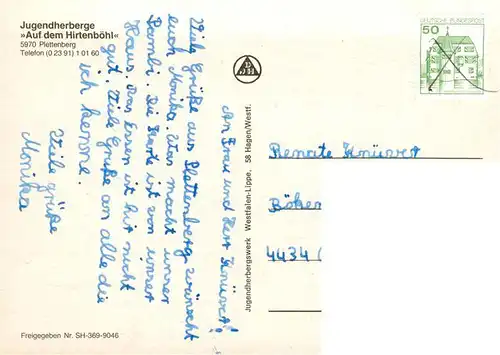 Jugendherberge
»Auf dem Hirtenböhl«
5970 Plettenberg
Telefon (0 23 91) 1 01 60
An Frau und Herr Knüvert!
Viele Grüße aus Plettenberg wünscht
euch Monika. Was macht unser
Bambi. Die Karte ist von unser
Haus. Das essen ist hir nicht
gut. Viele Grüße an alle die
ich kenne.
Viele grüße
Monika
Freigegeben Nr. SH-369-9046
Jugendherbergswerk Westfalen-Lippe, 58 Hagen/Westf.
DJH
DEUTSCHE BUNDESPOST
50
Renate Knüvert
4434